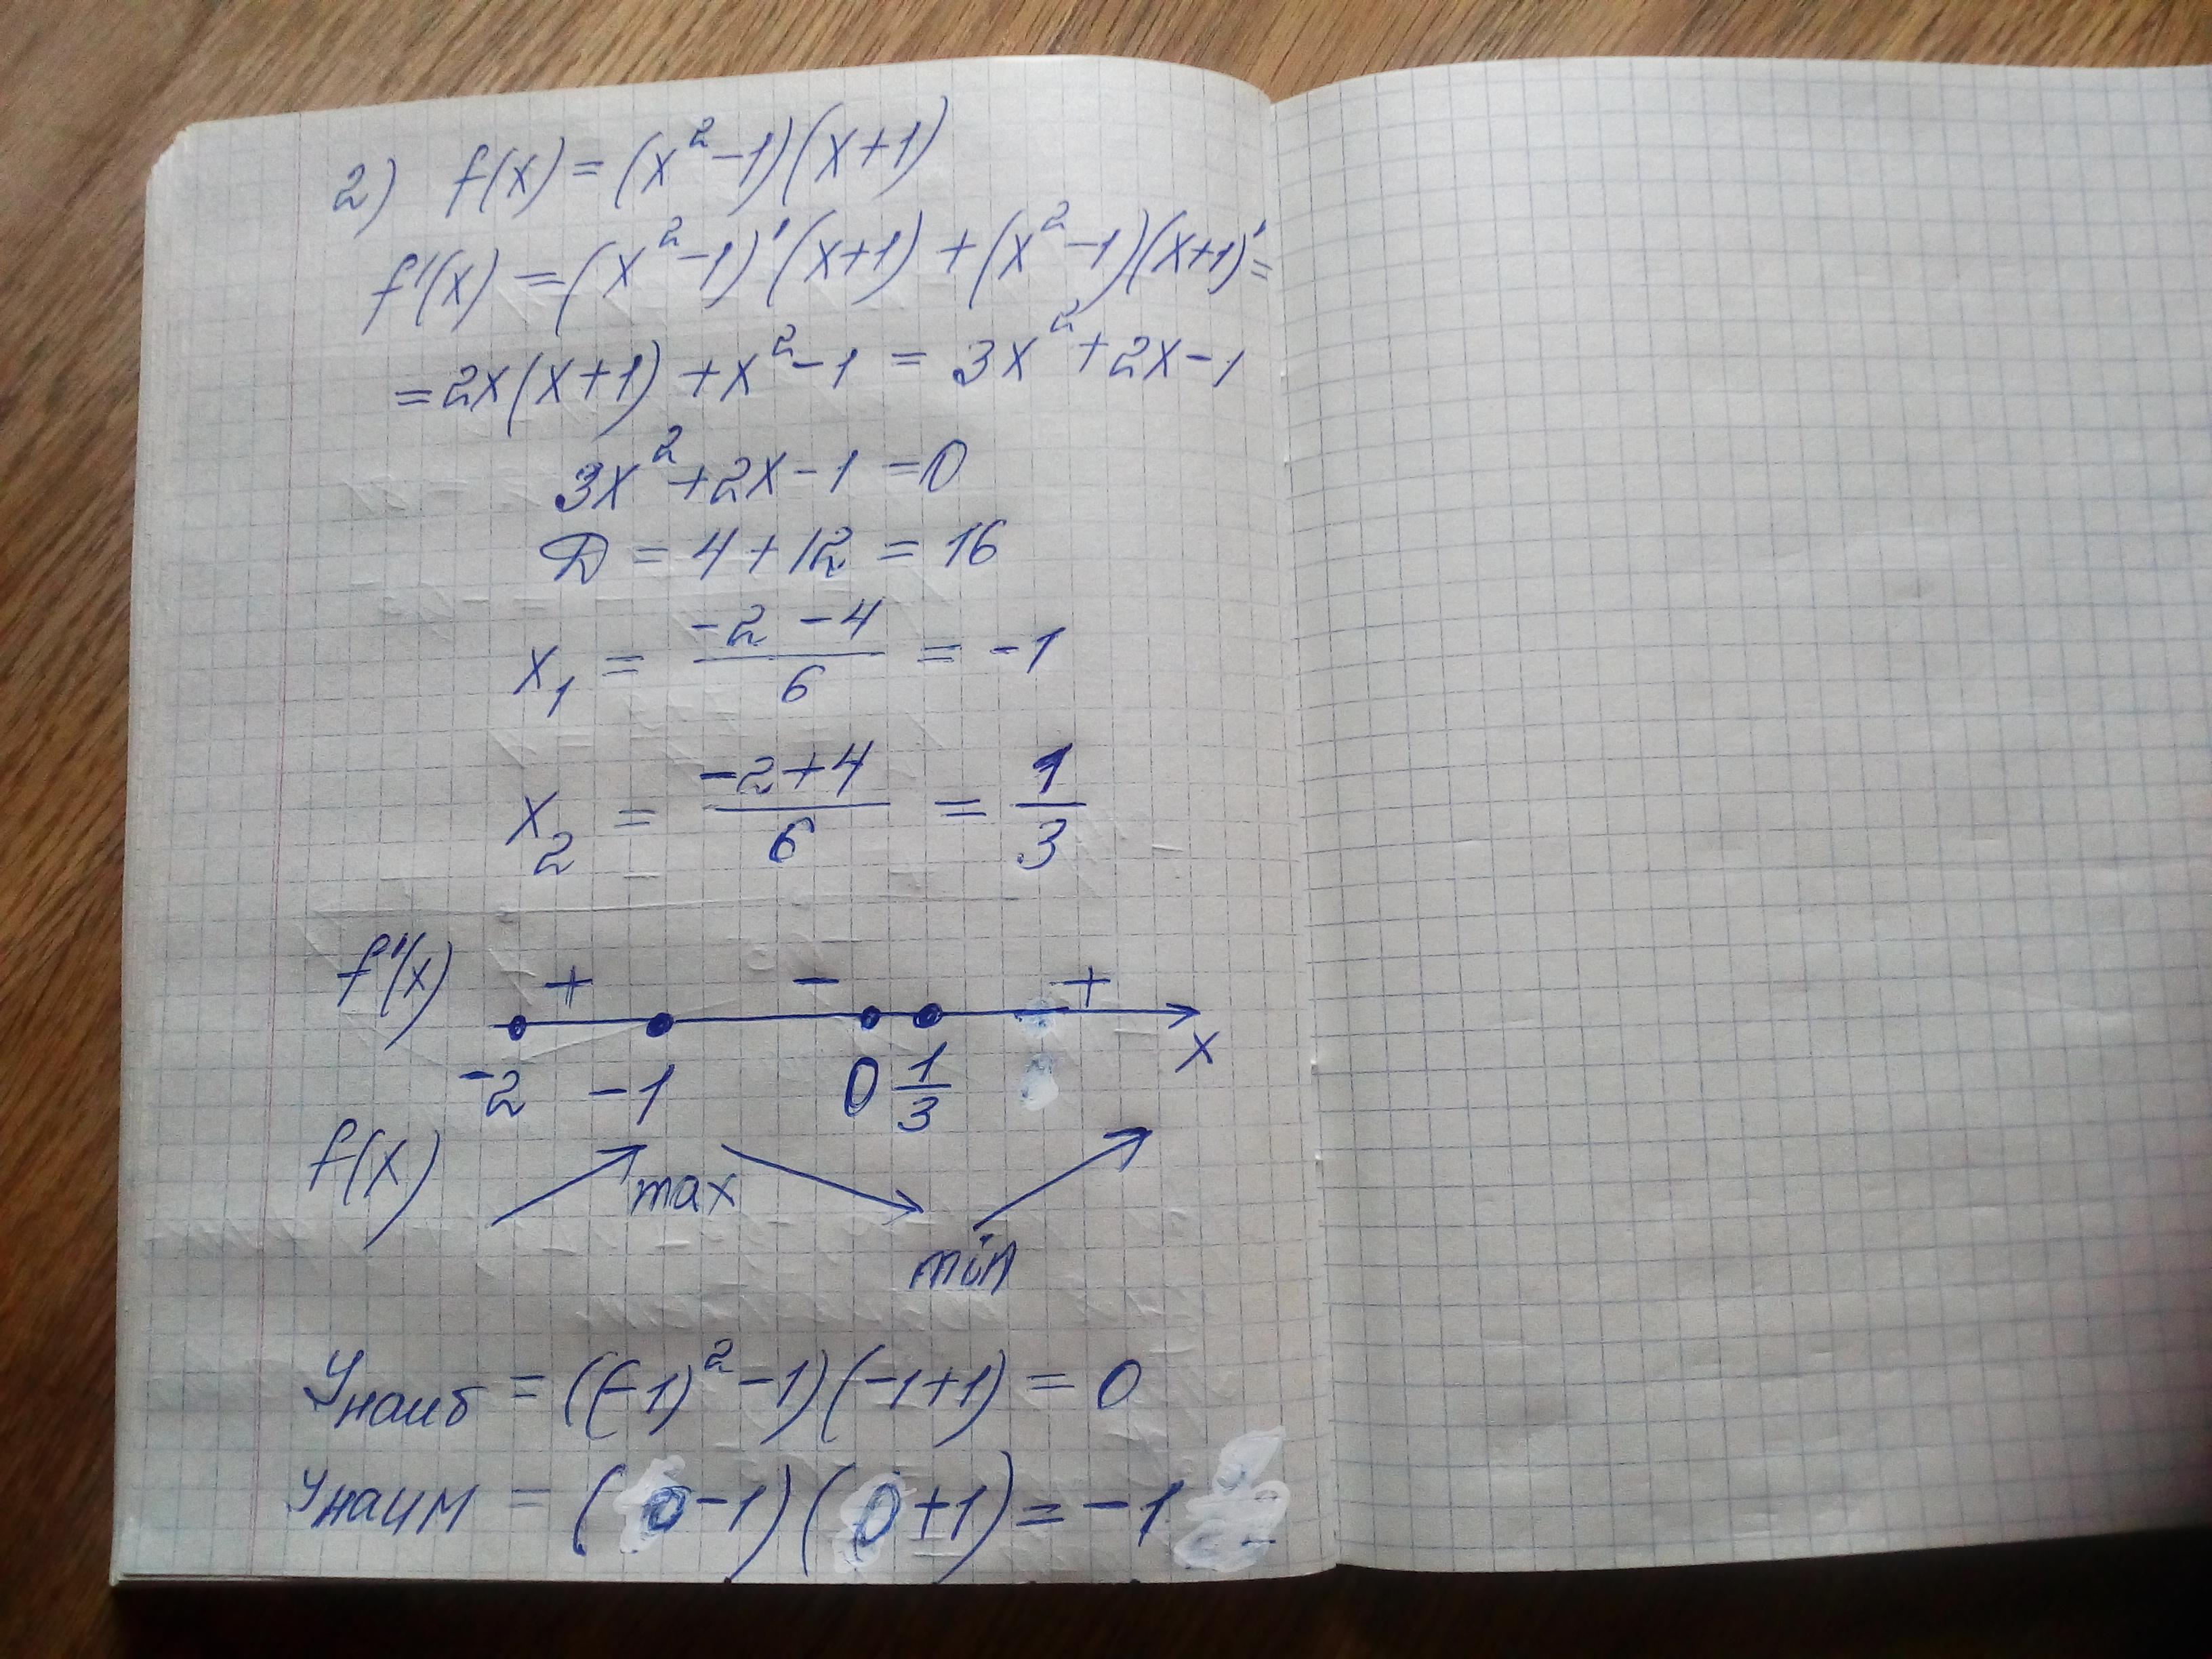 2) f(x) = (x² -1)(x+1)
f'(x) = (x² -1)'(x+1) + (x² -1)(x+1)' =
= 2x(x+1) + x² -1 = 3x² + 2x - 1
3x² + 2x - 1 = 0
D = 4 + 12 = 16
x₁ = (-2 - 4)/6 = -1
x₂ = (-2 + 4)/6 = 1/3
f'(x) + - +
-2 -1 0 1/3 x
f(x) max min
Yнаиб = ((-1)² -1)(-1+1) = 0
Yнаим = (0-1)(0+1) = -1